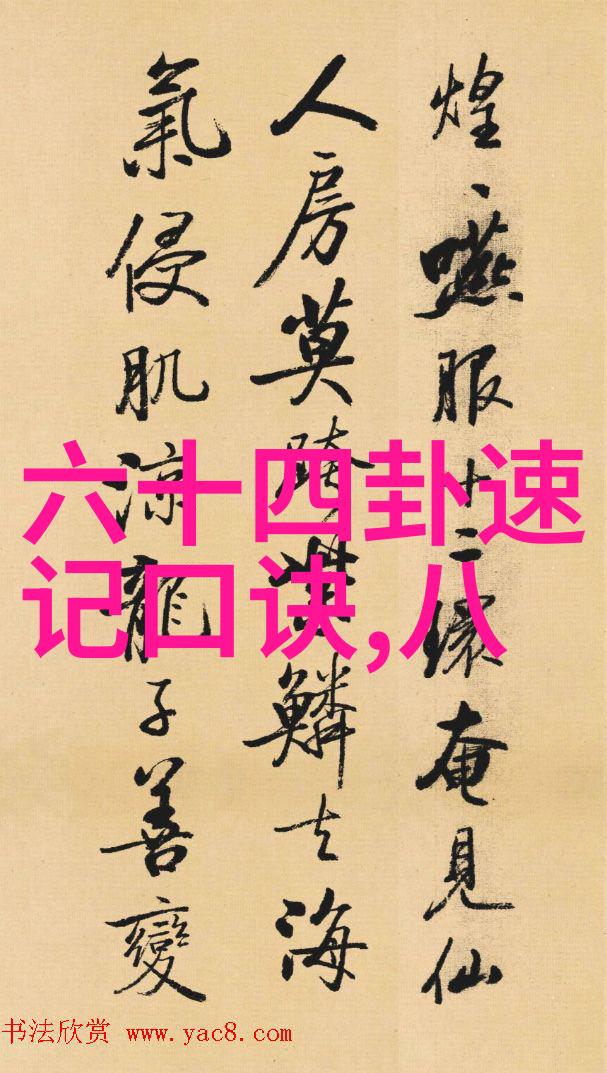 煌、嚥服十二環奄見仙
人房莫跨紫鱗去海
氣侵肌涼龍子善變
六十四卦速
记口诀,八
书法欣赏 www.yac8.com